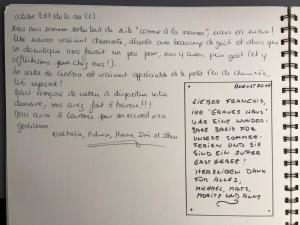 octobre 2017 (du 20 au 22).
Nous nous sommes sentis tout de suite "comme à la maison", mais en mieux !
Une maison vraiment charmante, décorée avec beaucoup de goût et alors que
la domotique nous faisait un peu peur, nous y avons pris goût (et y
réfléchissons pour chez nous !).
La salle de cinéma est vraiment appréciable et le petit feu de cheminée,
très reposant !
Merci François de mettre à disposition votre
demeure, vous avez fait 5 heureux !!!
Merci aussi à Laurence pour son accueil et sa
gentillesse
Nathalie, Hanna, et
AUGUST 2017
LIEBER FRANCOIS,
IHR "GRAVES HAUS"
WAR EINE WUNDER-
BARE BASIS FÜR
UNSERE SOMMER-
FERIEN UND SIE
SIND EIN SUPER
GASTGEBER!
HERZLICHEN DANK
FÜR ALLES,
MICHAEL, MATS,
MORITZ UND